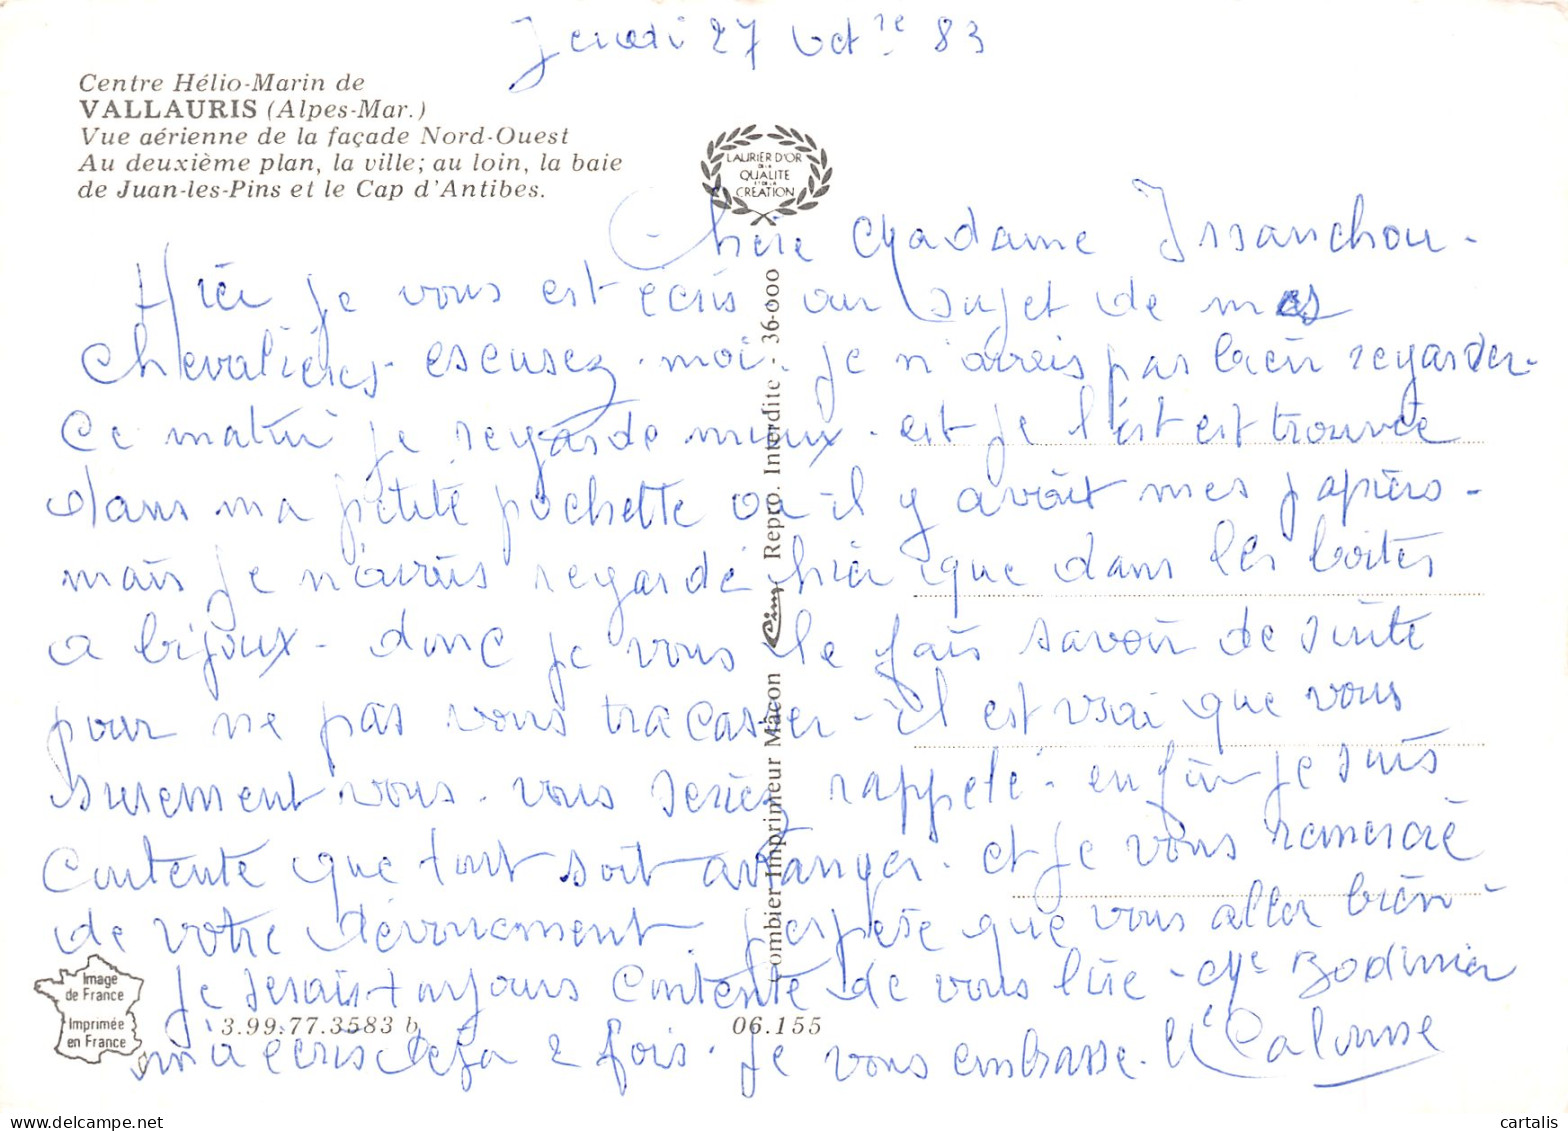 Jeudi 27 Oct re 83
Centre Hélio-Marin de
VALLAURIS (Alpes-Mar.)
Vue aérienne de la façade Nord-Ouest
Au deuxième plan, la ville; au loin, la baie
de Juan-les-Pins et le Cap d'Antibes.
LAURIER D'OR
DE LA
QUALITE
ET DE LA
CREATION
Chère Madame Issanchou -
Hier je vous est écris au sujet de mes
chevalières - escusez - moi - je n'avais pas bien regarder -
Ce matin je regarde mieux - est je l'est est trouvée
dans ma petite pochette où il y avait mes papiers -
mais je n'avais regardé hier que dans les boites
a bijoux - donc je vous le fais savoir de suite
pour ne pas vous tracasser - il est vrai que vous
surement vous - vous seriez rappelé - enfin je suis
Contente que tout soit arranger - et je vous remercie
de votre dévouement. j'espère que vous aller bien -
je serais toujours contente de vous lire - Me Bodinier
m'a écris déja 2 fois. je vous embrasse. Me Calonne
Combier Imprimeur Mâcon Cim Repro. Interdite - 36-000
Image
de France
Imprimée
en France
3.99.77.3583 b
06.155
cartalis